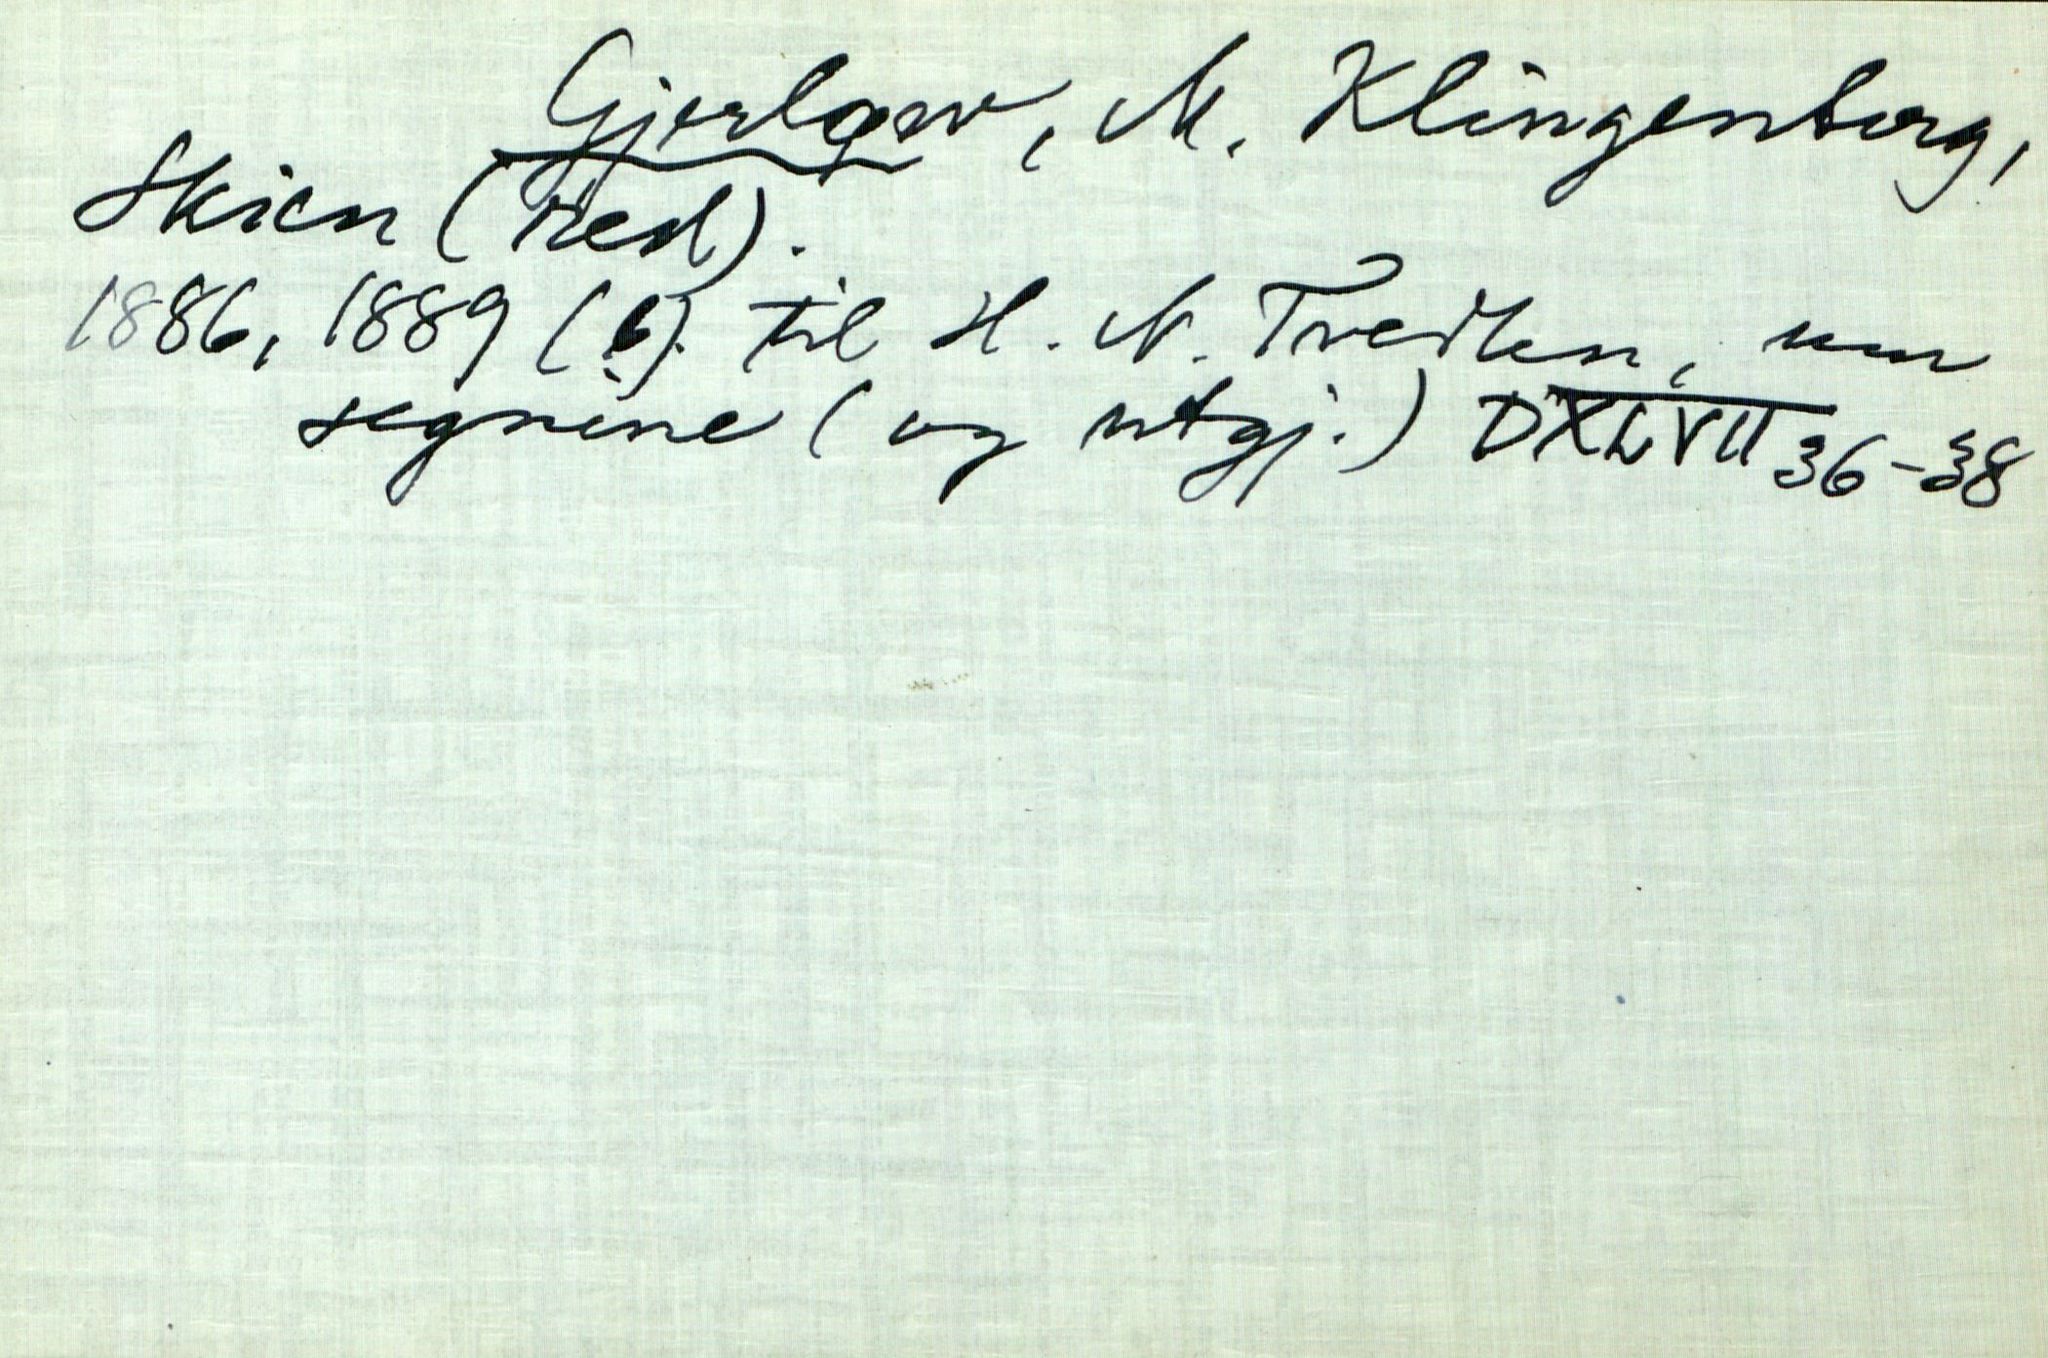 Gjerløw, M. Klingenberg,
Skien (red).
1886, 1889 (6). til H. N. Tvedten, um
segnene (og utgj.) DXLVII 36-38